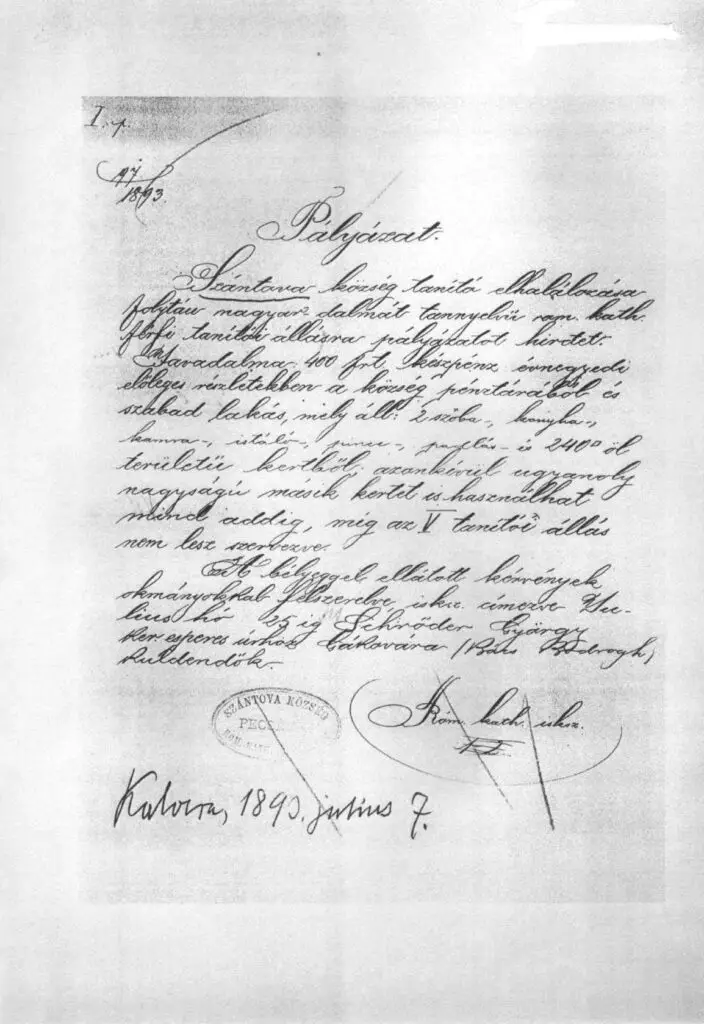 I.
97
1893.
Pályázat.
Szántova község tanitó elhalálozása
folytán magyar dalmát tannyelvü rom. kath.
férfi tanitói állásra pályázatot hirdet.
Javadalma: 400 frt. készpénz évnegyedi
előleges részletekben a község pénztárából és
szabad lakás, mely áll: 2 szoba-, konyha-,
kamra-, istáló-, pincze-, padlás- és 240□ öl
területü kertből; azonkivül ugyanoly
nagyságú másik kertet is használhat
mind addig, mig az V tanitói állás
nem lesz szervezve.
A bélyeggel ellátott kérvények
okmányokkal felszerelve isksz. cimezve Ju-
lius hó 25 ig Schröder György
ker. esperes úrhoz Csákovára (Bács Bodrogh)
küldendők.
SZÁNTOVA KÖZSÉG
Róm. kath. isksz.
Kalocsa, 1893. julius 7.